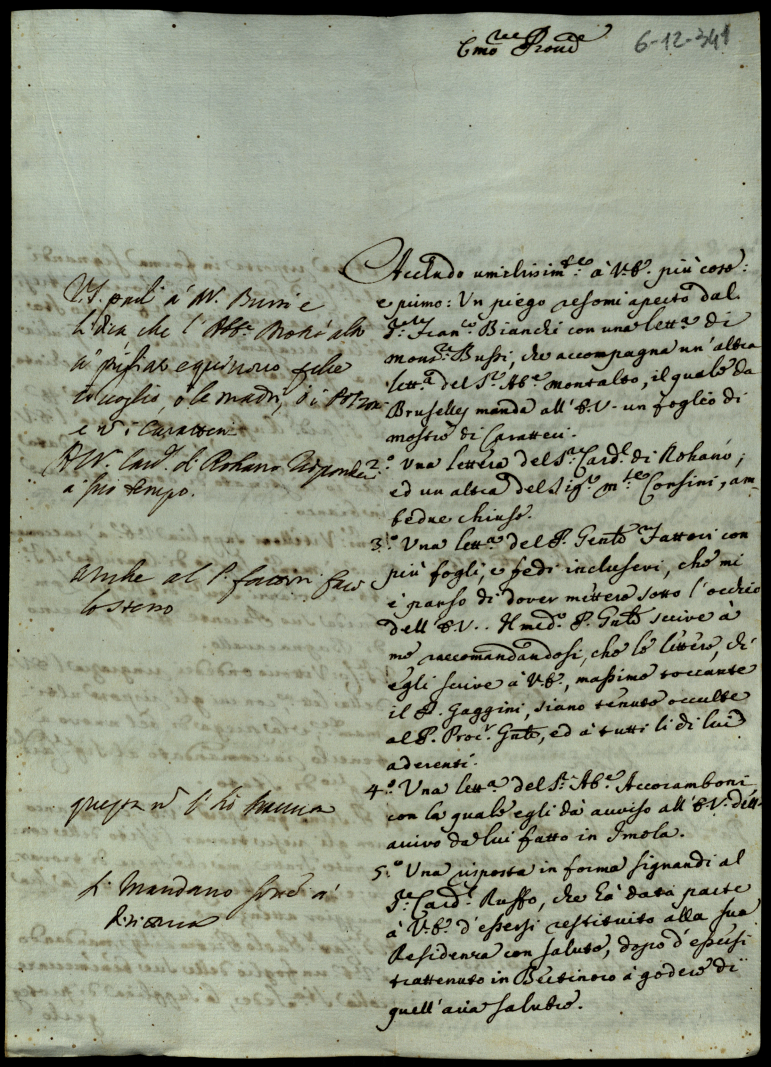 Emo. re Prone
6-12-341
Accludo umilissimte. à V.E. più cose:
e primo: Un piego resomi aperto dal
Sr. Franco. Bianchi con una letta. di
monsr. Bussi, che accompagna un'altra
letta. del Sr. Abe. Montalto, il quale da
Brusselles manda all'E.V. un foglio di
mostre di Caratteri.
2.o Una lettera del Sr. Cardl. di Rohano;
ed un altra del Sigr. mse. Corsini, am-
bedue chiuse.
3.o Una letta. del P. Genle. Fattori con
più fogli, e fedi inclusevi, che mi
è parso di dover mettere sotto l'occhio
dell'E.V.. Il medo. P. Gnle. scrive à
me raccomandandosi, che le lettere, ch'
egli scrive à V.E., massime toccante
il P. Gaggini, siano tenute occulte
al P. Procr. Gnle, ed à tutti li di lui
aderenti.
4.o Una letta. del Sr. Abe. Accoramboni
con la quale egli dà avviso all'E.V. dell'
arrivo da lui fatto in Imola.
5.o Una risposta in forma signandi al
Sr. Cardl. Ruffo, che hà data parte
à V.E. d'essersi restituito alla sua
Residenza con salute, dopo d'essersi
trattenuto in Bertinoro à godere di
quell'aria salubre.
V.S. parli à M. Bussi e
li dica che l'Abe.
à pigliar equivoco
o le madri, ò i
e n i Caratteri
A M. Card. di Rohano risponderò
a suo tempo.
anche al P. Fattori farò
lo stesso
questa n
si Mandano